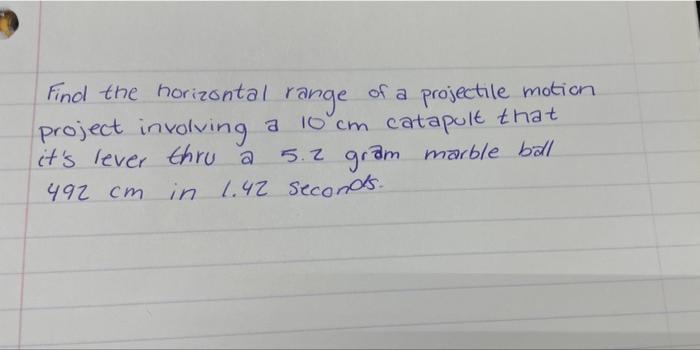 Find the horizontal range of a projectile motion
project involving a 10 cm catapult that
it's lever thru a 5.2 gram marble ball
492 cm in 1.42 seconds.